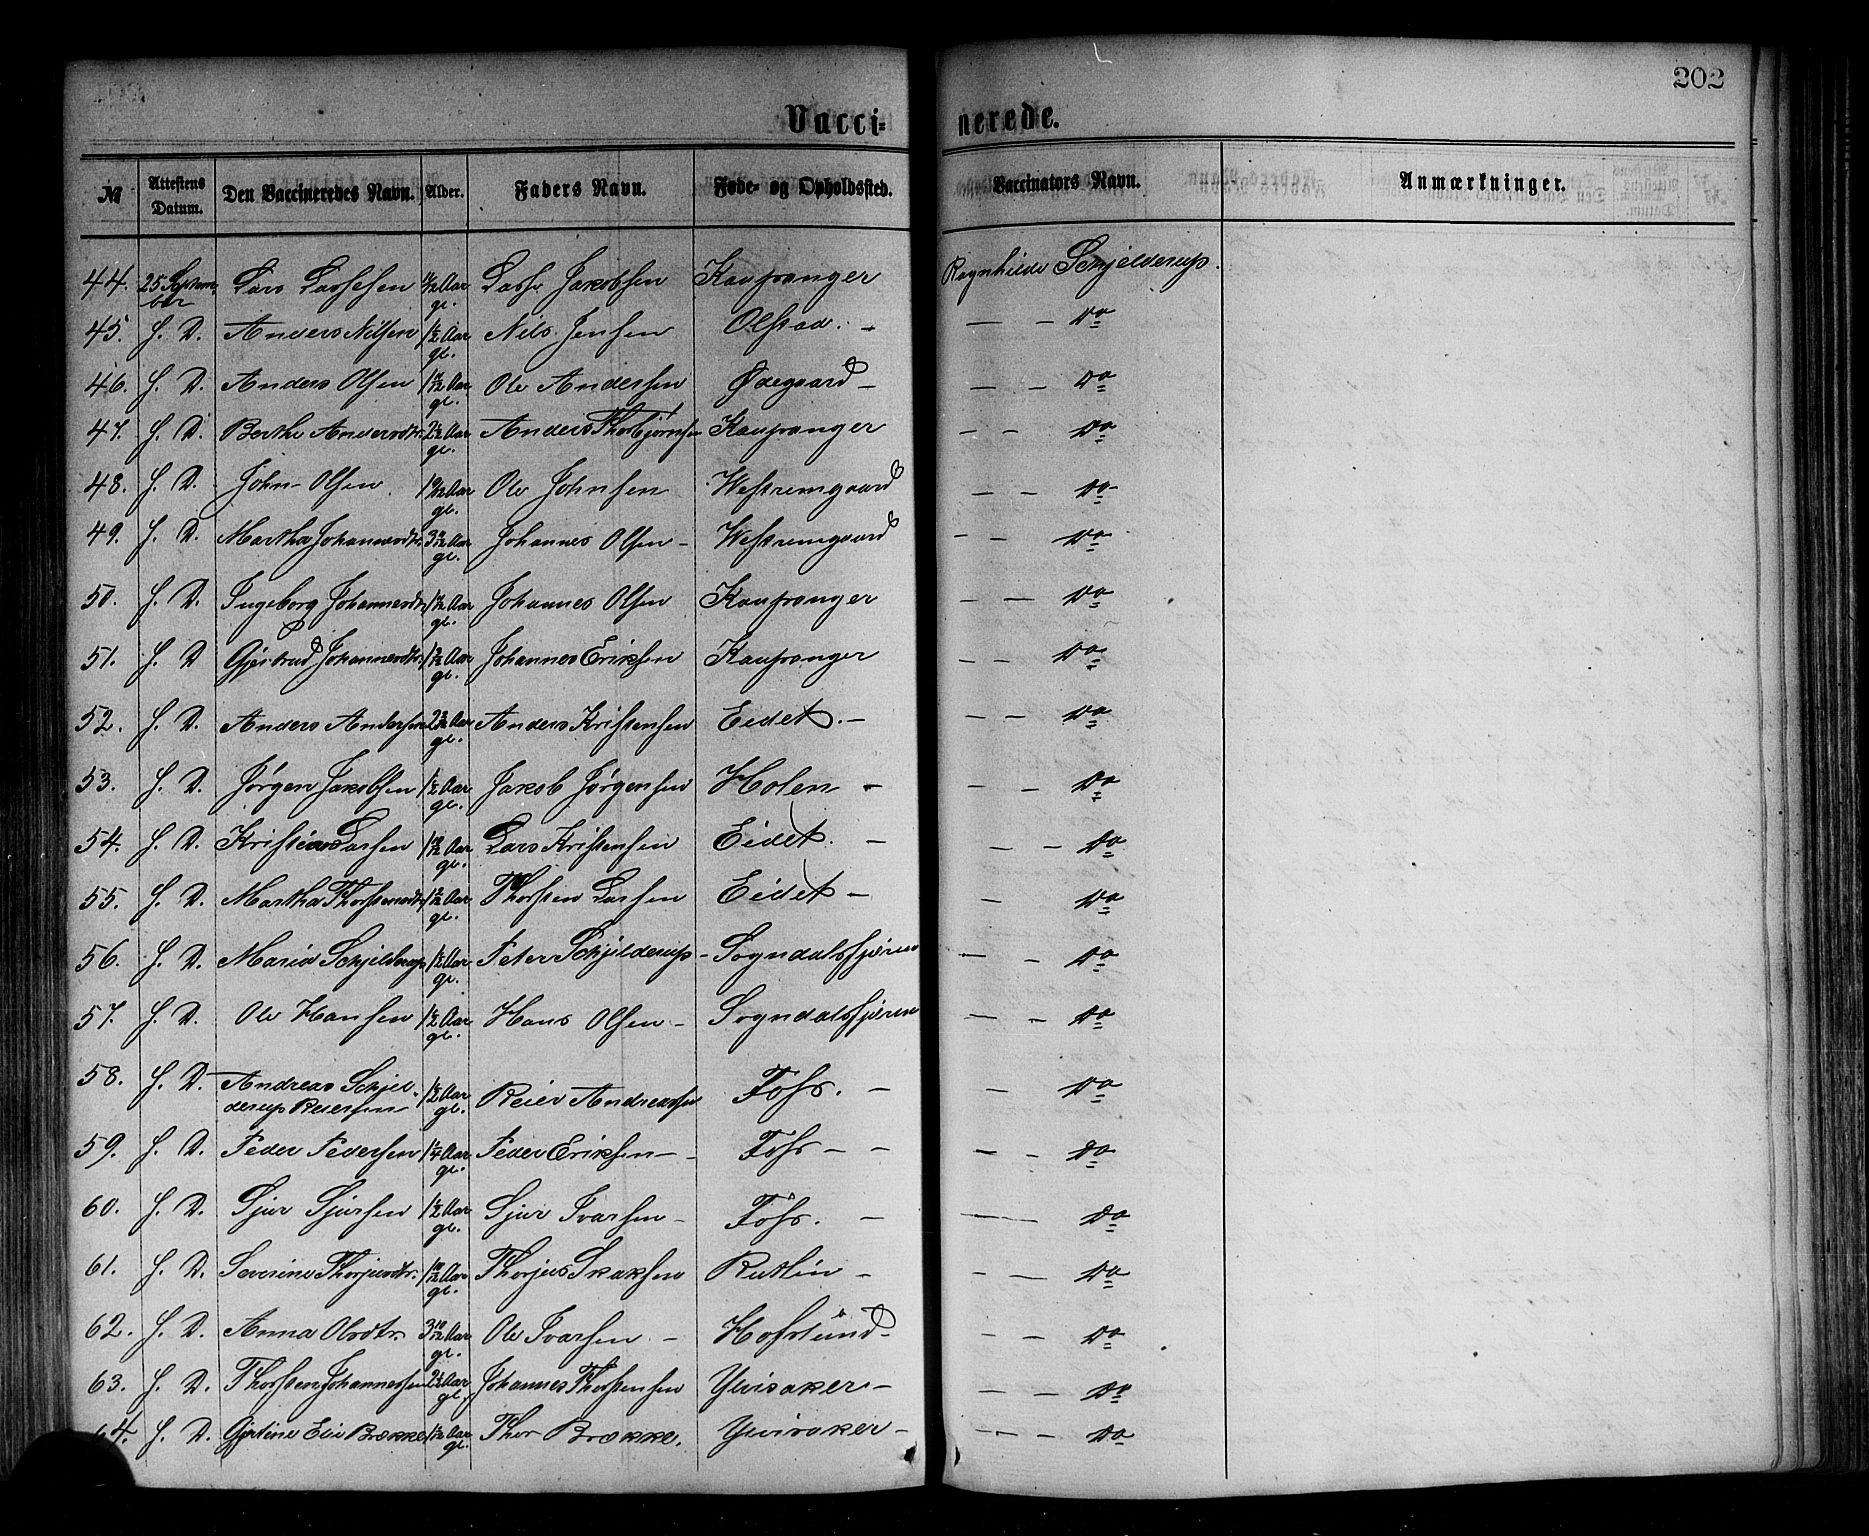 202
Vacci=
nerede.
№ Attestens Datum. Den Vaccineredes Navn. Alder. Faders Navn. Føde- og Opholdssted. Vaccinators Navn. Anmærkninger.
44. 25 Septem-ber Lars Lassesen Aar gl. Lasse Jakobsen Kaupanger Ragnhilde Schjelderup.
45. S. D. Anders Nilsen 1½ Aar gl. Nils Jensen Olstad. - — - Do
46. S. D. Anders Olsen Aar gl. Ole Andersen Ødegaard — — - Do
47. S. D. Berthe Andersdtr. Aar gl. Anders Thorbjørnsen Kaupanger — - Do
48. S. D. John Olsen Aar gl. Ole Johnsen Westremgaard — - Do
49. S. D. Martha Johannesdtr. Aar gl. Johannes Olsen - Westremgaard - - Do
50. S. D. Ingeborg Johannesdtr. Aar gl. Johannes Olsen Kaupanger — — Do
51. S. D Gjertrud Johannesdtr. Aar gl. Johannes Eriksen Kaupanger — - Do
52. S. D. Anders Andersen Aar gl. Anders Kristensen Eidet. — — - Do
53. S. D. Jørgen Jakobsen 1½ Aar gl. Jakob Jørgensen Holen - — - Do
54. S. D. Kristen Larsen Aar gl. Lars Kristensen Eidet. — — - Do
55. S. D. Martha Thorstensdtr. Aar gl. Thorsten Larsen Eidet — — Do
56. S. D. Maria Schjelderup 1½ Aar gl. Peter Schjelderup - Sogndalsfjøren — - Do
57. S. D. Ole Hansen 1½ Aar gl. Hans Olsen - Sogndalsfjøren — - Do
58. S. D. Andreas Schjel-
derup Reiersen 1½ Aar gl. Reier Andreassen Fosr. — — Do
59. S. D. Peder Pedersen 1¼ Aar gl. Peder Eriksen — - Fosr — - — - Do
60. S. D. Sjur Sjursen 1½ Aar gl. Sjur Ivarsen - Fosr. — — - Do
61. S. D. Severine Thorjusdtr. 1 10/12 Aar gl. Thorjus Skaksen Rutlin - — — Do
62. S. D. Anna Olsdtr. 3 10/12 Aar gl. Ole Ivarsen - Hofslund - — - Do
63. S. D. Thorsten Johannessen Aar gl. Johannes Thorstensen Yvisaker - — - Do
64. S. D. Gjertine Elie Brække Aar gl. Thor Brække. Yvisaker - — - Do